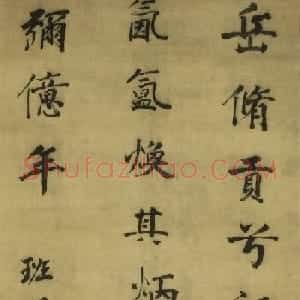 岳脩貢兮
氤氳煥其炳
彌億年 班